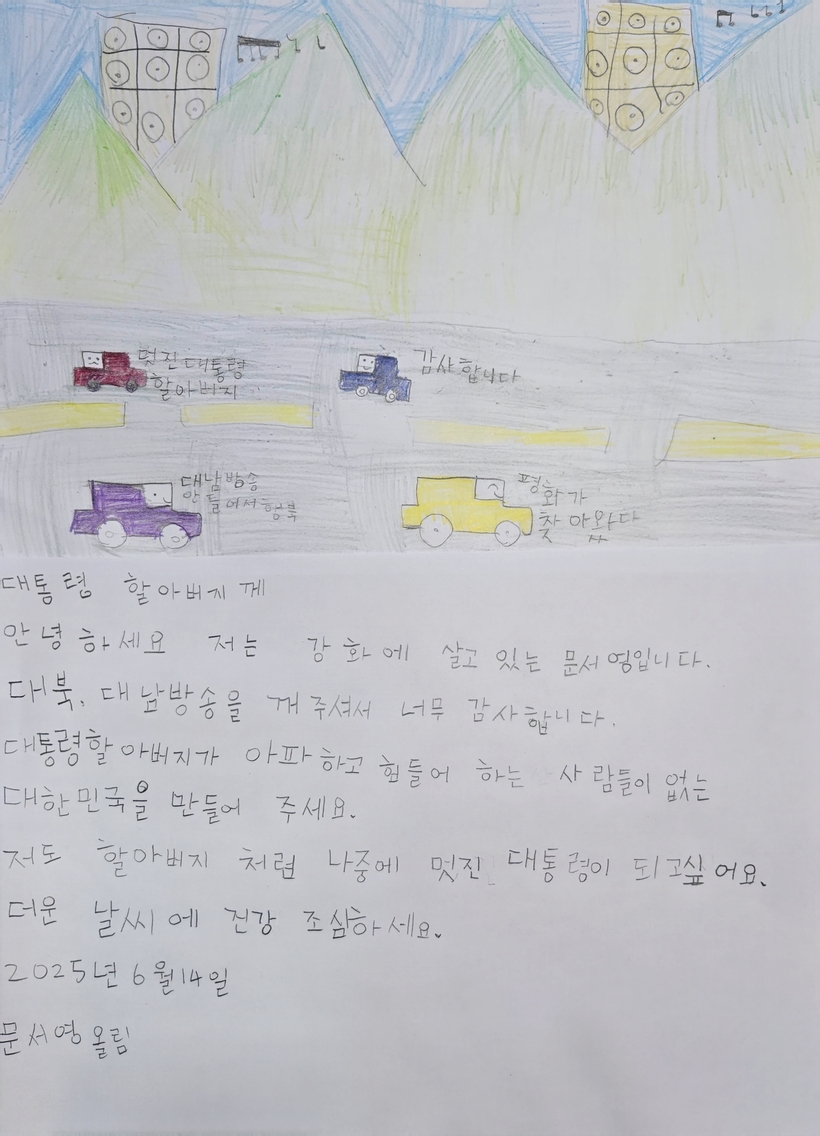 멋진 대통령
할아버지
감사합니다
대남방송
안 들어서 행복
평화가
찾아왔다
대통령 할아버지께
안녕하세요 저는 강화에 살고 있는 문서영입니다.
대북, 대남방송을 꺼주셔서 너무 감사합니다.
대통령할아버지가 아파하고 힘들어 하는 사람들이 없는
대한민국을 만들어 주세요.
저도 할아버지 처럼 나중에 멋진 대통령이 되고싶어요.
더운 날씨에 건강 조심하세요.
2025년 6월 14일
문서영 올림